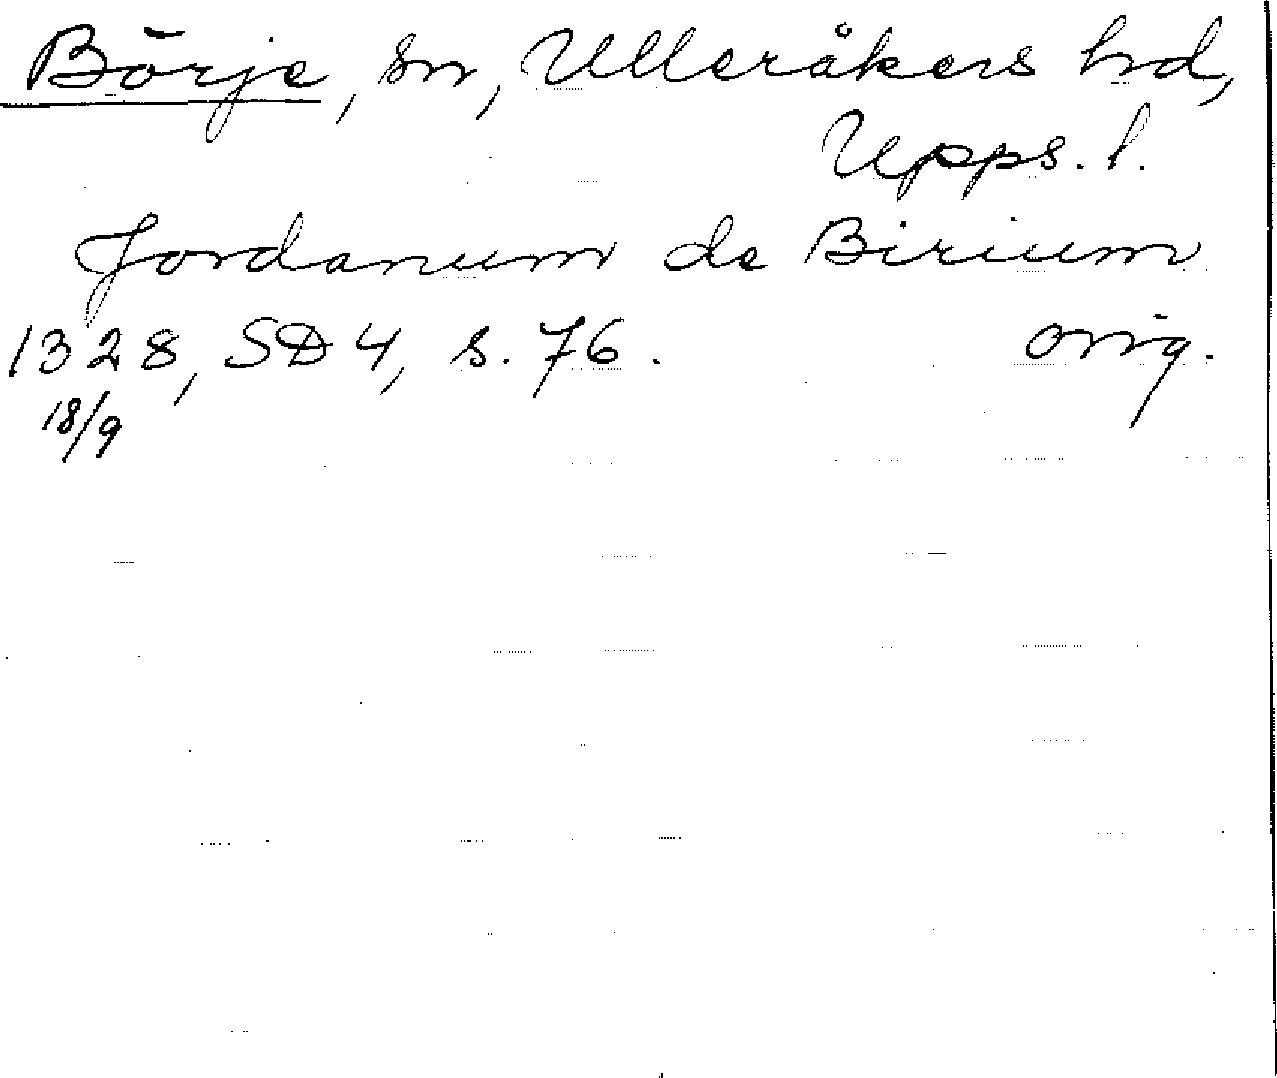 Börje, sn, Ulleråkers hrd,
Upps. l.
Jordanum de Birium
1328, SD 4, s. 76. orig.
18/9